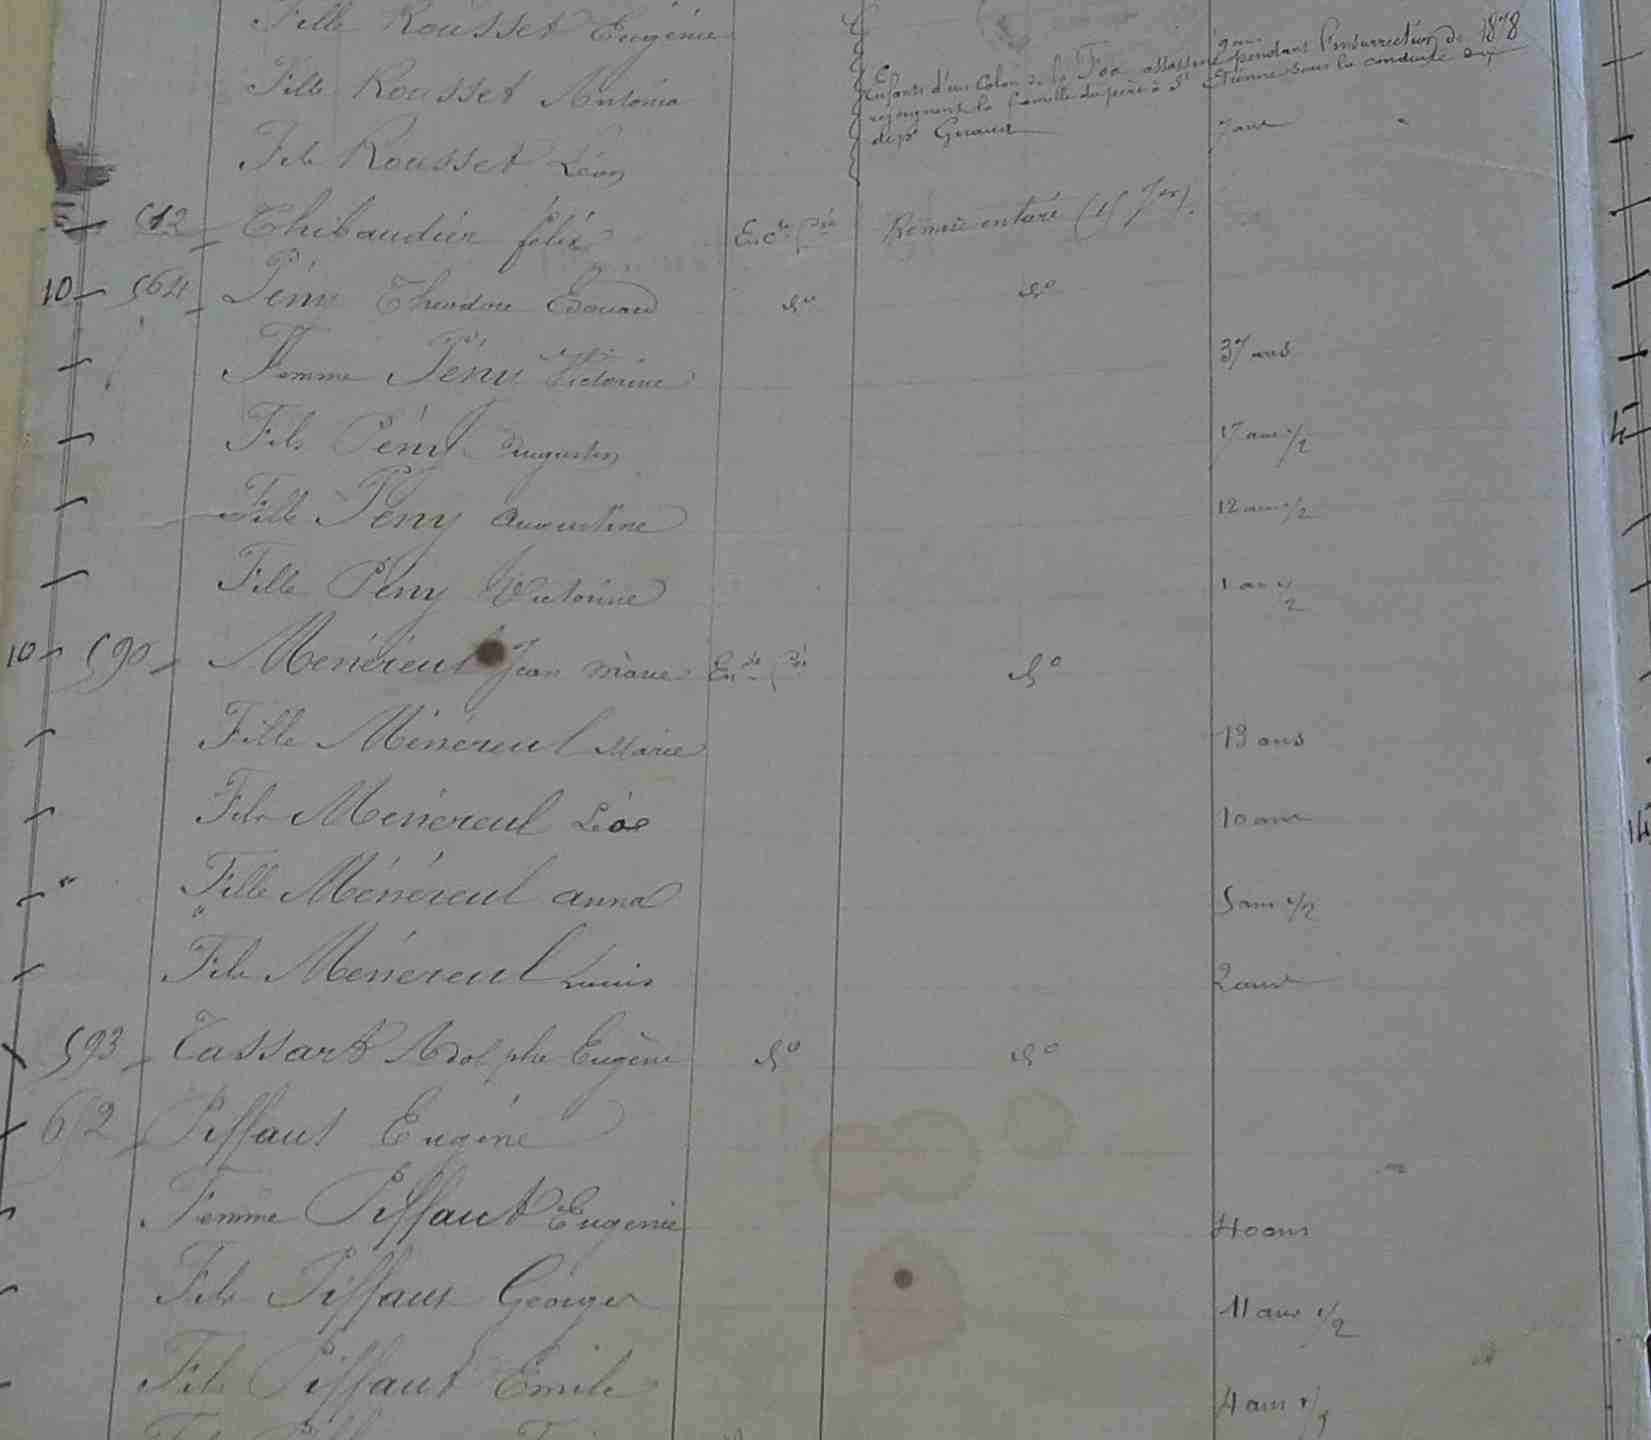 Fille Rousset Eugénie
9 ans
Fille Rousset Antonia
Enfants d'un Colon de la Foa assassiné pendant l'insurrection de 1878
rejoignent la famille du père à St Etienne sous la conduite du
dépé
Fils Rousset Léon 7 ans
512 Thibaudier félix
10 564 Pény Théodore Edouard do do
Femme Pény Victorine 37 ans
Fils Pény Augustin 17 ans 1/2
Fille Pény Augustine 12 ans 1/2
Fille Pény Victorine 1 an 1/2
10 590 Ménéreul Jean Marie do
Fille Ménéreul Marie 13 ans
Fils Ménéreul Léon 10 ans
Fille Ménéreul anna 5 ans 1/2
Fils Ménéreul Louis 2 ans
593 Tassart Adolphe Eugène do do
652 Piffaut Eugène
Femme Piffaut Eugénie 40 ans
Fils Piffaut Georges 11 ans 1/2
Fils Piffaut Emile 4 ans